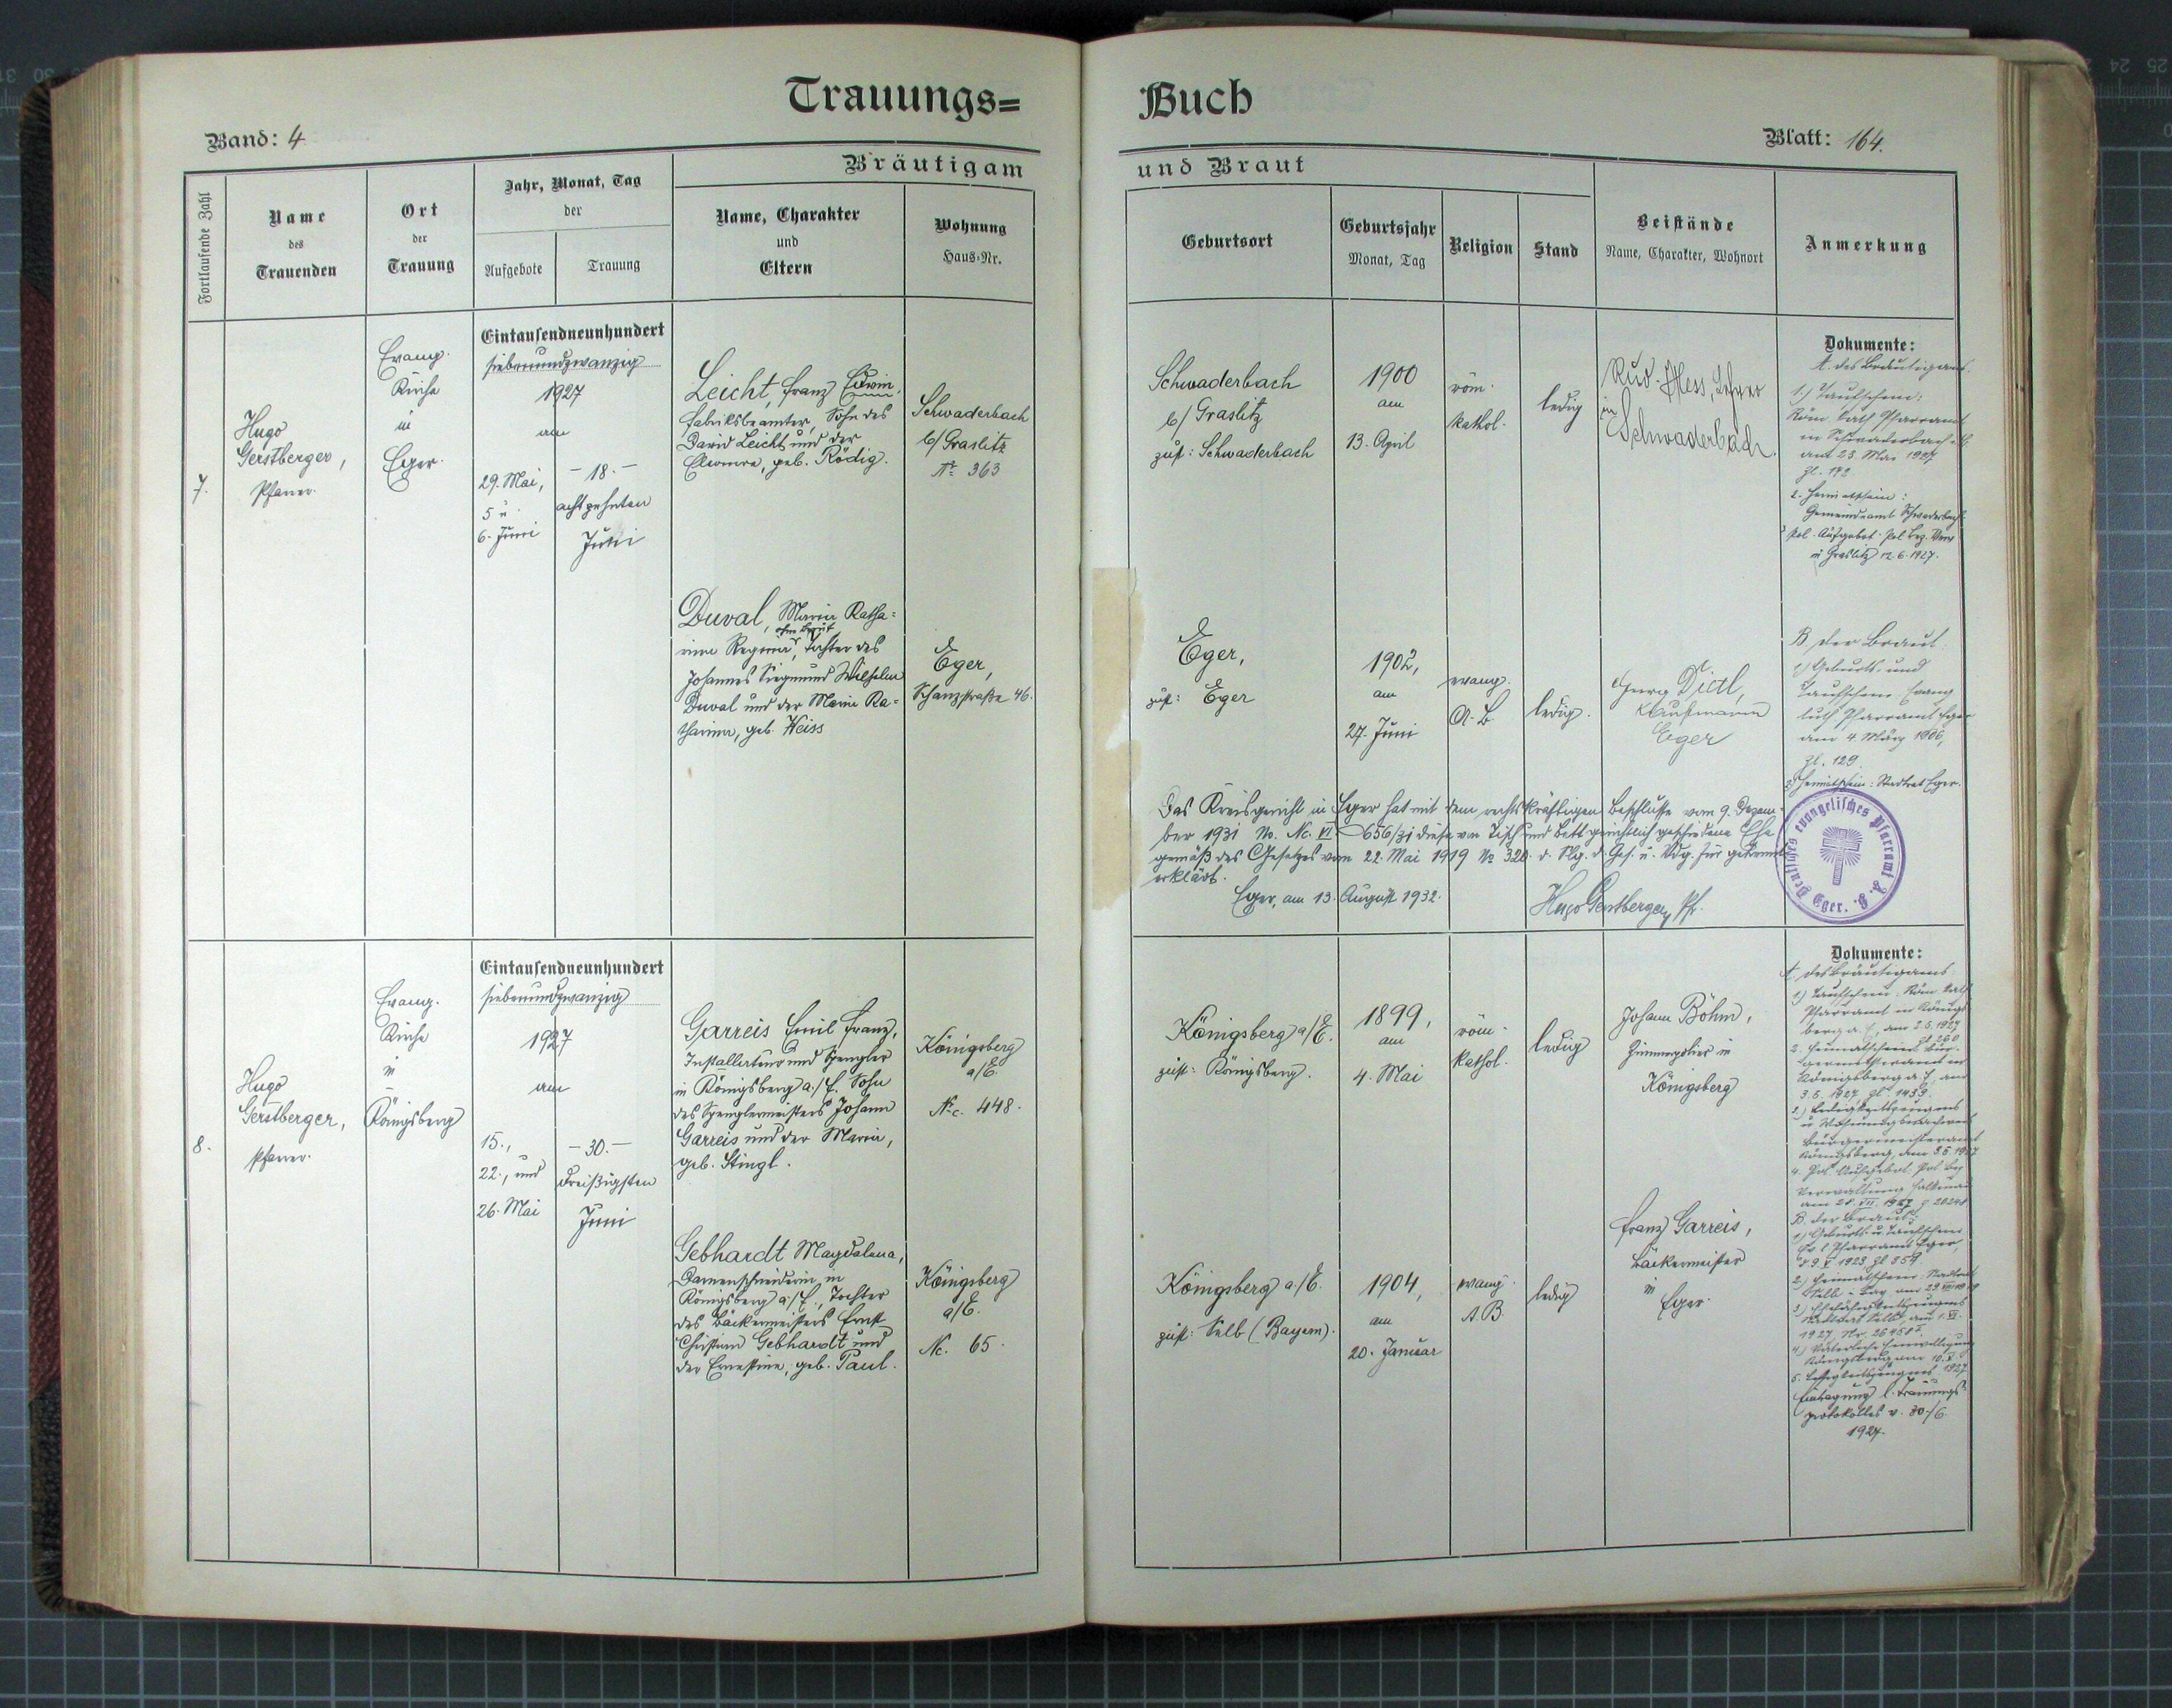 Trauungs=
Buch
Band: 4
Blatt: 164.
Fortlaufende Zahl
Name
des
Trauenden
Ort
der
Trauung
Jahr, Monat, Tag
der
Aufgebote
Trauung
Bräutigam
und Braut
Name, Charakter
und
Eltern
Wohnung
Haus-Nr.
Geburtsort
Geburtsjahr
Monat, Tag
Religion
Stand
Beistände
Name, Charakter, Wohnort
Anmerkung
7.
Hugo
Gerstberger,
Pfarrer.
Evang.
Kirche
in
Eger.
Eintausendneunhundert
siebenundzwanzig
1927
am
29. Mai,
5 u.
6. Juni
- 18. -
achtzehnten
Juni
Leicht, Franz Edwin,
Fabriksbeamter, Sohn des
David Leicht und der
Eleonora, geb. Rödig.
Schwaderbach
b/ Graslitz
No. 363
Schwaderbach
b/ Graslitz
zust: Schwaderbach
1900
am
13. April
röm.
kathol.
ledig
Rud. Hess, Lehrer
in
Schwaderbach.
Dokumente:
A. des Bräutigams.
1.) Taufschein:
Röm. kath Pfarramt
in Schwaderbach
am 23. Mai 1927
Zl. 172
2. Heimatschein:
Gemeindeamt Schwaderbach
Pol. Aufgebot. Pol. Bez. Verw
in Graslitz 12.6.1927.
Duval, Maria Katha=
rina Regina, Tochter des
ohne Beruf
Johannes Siegmund Wilhelm
Duval und der Maria Ka=
tharina, geb. Weiss
Eger,
Schanzstraße 46.
Eger,
zust: Eger
1902,
am
27. Juni
evang.
A. B.
ledig.
Georg Dietl,
Kaufmann
Eger
B. der Braut.
1.) Geburts- und
Taufschein: Evang.
luth Pfarramt Eger
am 4. März 1906,
Zl. 129.
2.) Heimatschein: Stadtrat Eger.
Das Kreisgericht in Eger hat mit dem rechtskräftigen Beschlusse vom 9. Dezem-
ber 1931 No. Nc. VI 656/31 diese von Tisch und Bett gerichtlich geschiedene Ehe
gemäß des Gesetzes vom 22. Mai 1919 No 320. d. Slg. d. Ges. u. Vdg. für getrennt
erklärt.
Eger, am 13. August 1932.
Hugo Gerstberger, Pfr.
Deutsches evangelisches Pfarramt A. B. Eger.
8.
Hugo
Gerstberger,
Pfarrer.
Evang.
Kirche
in
Königsberg
Eintausendneunhundert
siebenundzwanzig
1927
am
15.,
22., und
26. Mai
- 30. -
dreißigsten
Juni
Garreis Emil Franz,
Installateur und Spengler
in Königsberg a./E. Sohn
des Spenglermeisters Johann
Garreis und der Maria,
geb. Stingl.
Königsberg
a/E.
Nc. 448.
Königsberg a/E.
zust: Königsberg.
1899,
am
4. Mai
röm.
kathol.
ledig
Johann Böhm,
Zimmerpolier in
Königsberg
Dokumente:
A. des Bräutigams
1.) Taufschein: Röm. kath
Pfarramt in Königs
berg a. E., am 2.5. 1927
Zl 260
2. Heimatschein: Bür-
germeisteramt in
Königsberg a. E, am
3.5. 1927 Zl. 1453.
3.) Ledigkeitszeugnis
Bürgermeisteramt
Königsberg, den 3.5. 1927
4. Pol. Aufgebot. Pol. Bez.
Verwaltung Falkenau
Gebhardt Magdalena,
Damenschneiderin in
Königsberg a./E., Tochter
des Bäckermeisters Ernst
Christian Gebhardt und
der Ernestine, geb. Paul.
Königsberg
a/E.
Nc. 65.
Königsberg a./E.
zust: Selb (Bayern).
1904,
am
20. Januar
evang.
A. B.
ledig
Franz Garreis,
Bäckermeister
in
Eger.
B. der Braut:
1.) Geburts- u. Taufschein
Pfarramt Eger,
2.) Heimatschein: Stadtrat
3.) Ehefähigkeitszeugnis
Stadtrat Selb, am 1. VI.
4.) Väterliche Einwilligung
Königsberg am 10. V.
1927
Eintragung l. Trauungs-
protokolles v. 30./6.
1927.